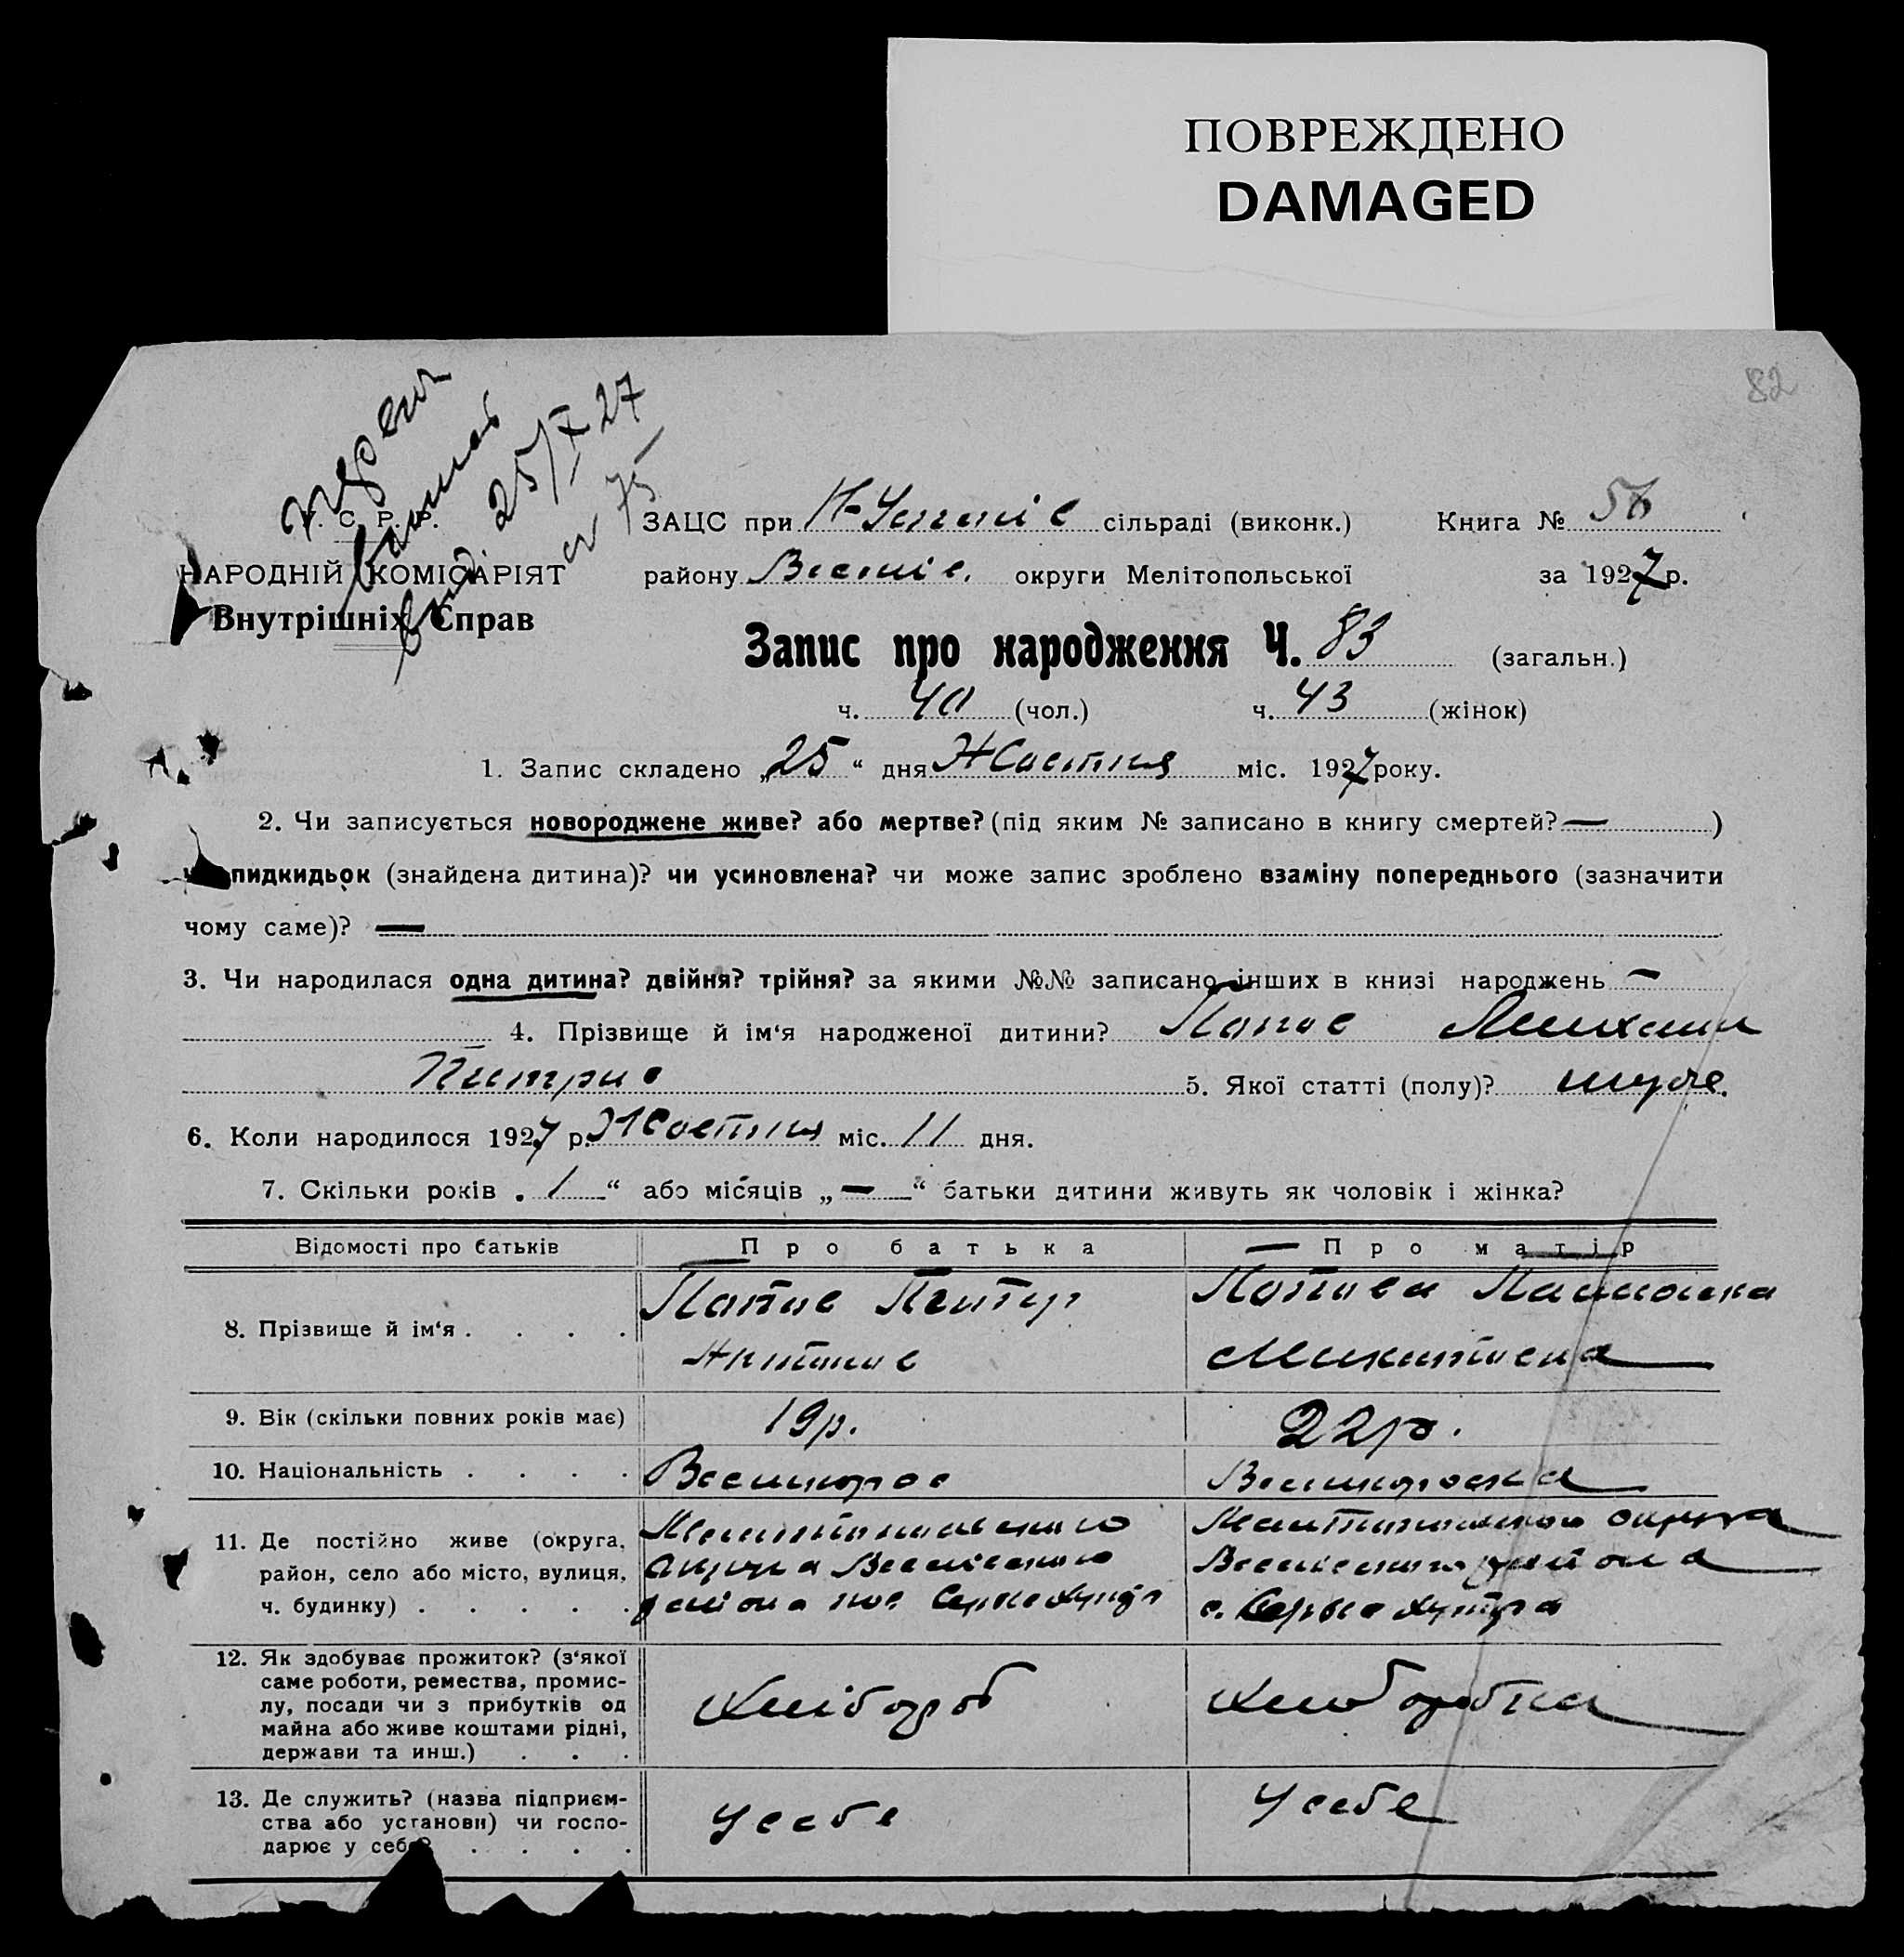 ПОВРЕЖДЕНО
DAMAGED
82
25/X 27
75
У. С. Р. Р.
НАРОДНІЙ КОМІСАРІЯТ
Внутрішніх Справ
ЗАЦС при сільраді (виконк.) Книга №
району округи Мелітопольської за 1927 р.
Запис про народження Ч. 83 (загальн.)
ч. 40 (чол.) ч. 43 (жінок)
1. Запис складено „25“ дня Жовтня міс. 1927 року.
2. Чи записується новороджене живе? або мертве? (під яким № записано в книгу смертей? — )
пидкидьок (знайдена дитина)? чи усиновлена? чи може запис зроблено взаміну попереднього (зазначити
чому саме)? —
3. Чи народилася одна дитина? двійня? трійня? за якими №№ записано інших в книзі народжень —
4. Прізвище й ім‘я народженої дитини? Попов Михаил
5. Якої статті (полу)?
6. Коли народилося 1927 р. Жовтня міс. 11 дня.
7. Скільки років „ 1 “ або місяців „ — “ батьки дитини живуть як чоловік і жінка?
Відомості про батьків Про батька Про матір
8. Прізвище й ім‘я . . . . Попов Петр Попова
Антонов Микитовна
9. Вік (скільки повних років має) 19р. 22р.
10. Національність . . . . Великорос Великороска
11. Де постійно живе (округа,
район, село або місто, вулиця,
ч. будинку) . . . . .
12. Як здобуває прожиток? (з‘якої
саме роботи, ремества, промис-
лу, посади чи з прибутків од
майна або живе коштами рідні,
держави та инш.) . . .
Хлібороб Хлiборобка
13. Де служить? (назва підприєм-
ства або установи) чи госпо-
дарює у себе? . . . .
У себе У себе